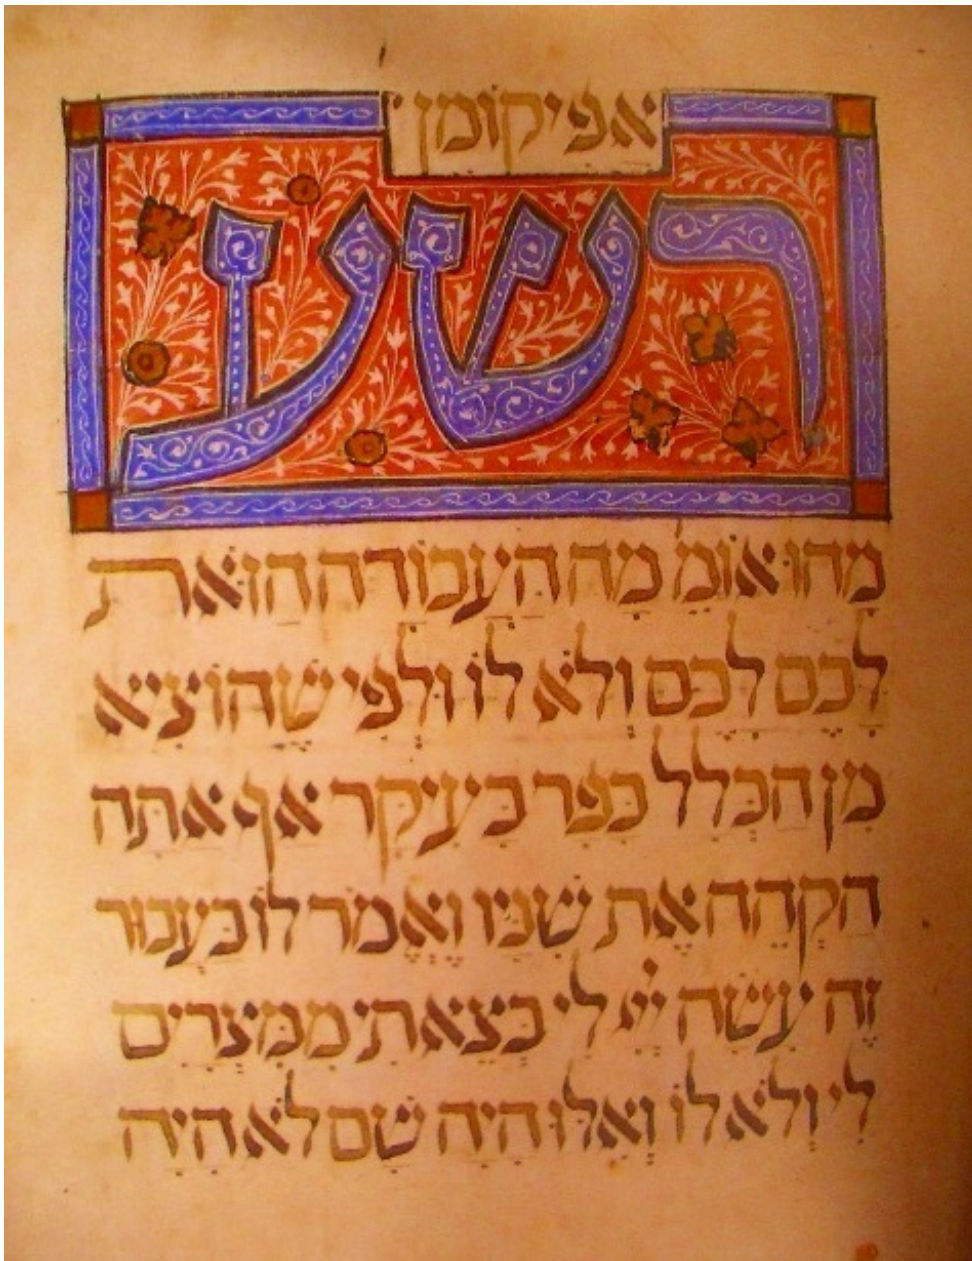 אפיקומן
רשע
מהו אומ' מה העבודה הזאת
לכם לכם ולא לו ולפי שהוציא
מן הכלל כפר בעיקר אף אתה
הקהה את שניו ואמר לו בעבור
זה עשה ייי לי בצאתי ממצרים
לי ולא לו ואלו היה שם לא היה